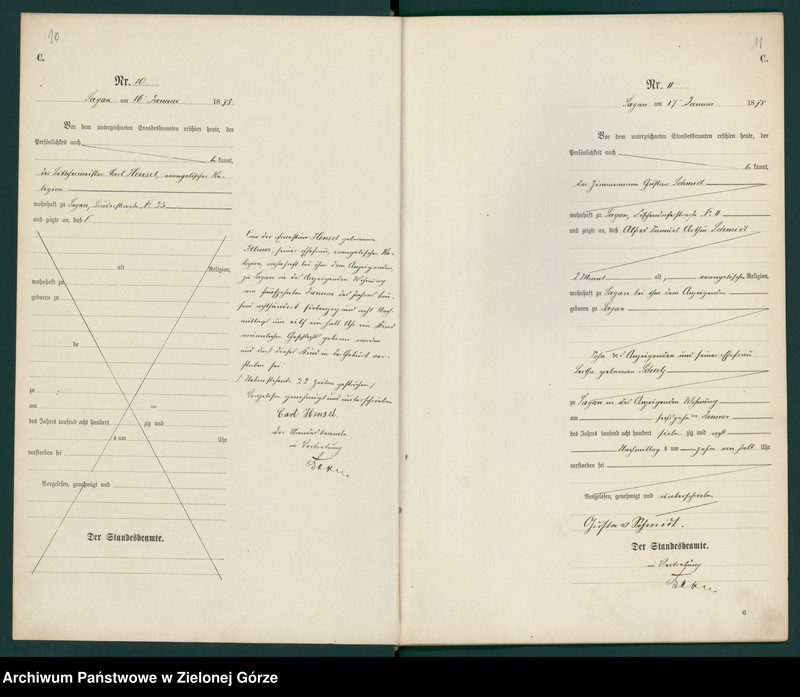 10
C.
Nr. 10
Sagan am 16 Januar 1878.
Vor dem unterzeichneten Standesbeamten erschien heute, der
Persönlichkeit nach
be kannt,
der Böttchermeister Carl Hensel, evangelischer Re-
ligion
wohnhaft zu Sagan, 25
und zeigte an, daß
alt Religion,
wohnhaft zu
geboren zu
de
zu
am ten
des Jahres tausend acht hundert zig und
s um Uhr
verstorben sei
Vorgelesen, genehmigt und
Der Standesbeamte.
von der Ernestine Hensel geborenen
seiner Ehefrau, evangelischer Re-
ligion, wohnhaft bei ihm dem Anzeigenden,
zu Sagan in des Anzeigenden Wohnung
am fünfzehnten Januar des Jahres tau-
send achthundert siebenzig und acht Vor-
mittags um ein halb Uhr ein Kind
männlichen Geschlechts geboren worden
und daß dieses Kind in der Geburt ver-
storben sei.
Nebenstehende 23 Zeilen gestrichen
Vorgelesen genehmigt und unterschrieben
Carl Hensel.
Der Standesbeamte
in Vertretung
11
C.
Nr. 11
Sagan am 17 Januar 1878
Vor dem unterzeichneten Standesbeamten erschien heute, der
Persönlichkeit nach
be kannt,
der Zimmermann Gustav Schmidt
wohnhaft zu Sagan, No 11
und zeigte an, daß Alfred Samuel Arthur Schmidt
2 Monat alt, evangelischer Religion,
wohnhaft zu Sagan bei ihm dem Anzeigenden
geboren zu Sagan
Sohn des Anzeigenden und seiner Ehefrau
Bertha geborenen Scholz
zu Sagan in des Anzeigenden Wohnung
am sechszehn ten Januar
des Jahres tausend acht hundert sieben zig und acht
Nachmittag s um zehn ein halb Uhr
verstorben sei
Vorgelesen, genehmigt und unterschrieben
Gustav Schmidt.
Der Standesbeamte.
in Vertretung
6
Archiwum Państwowe w Zielonej Górze